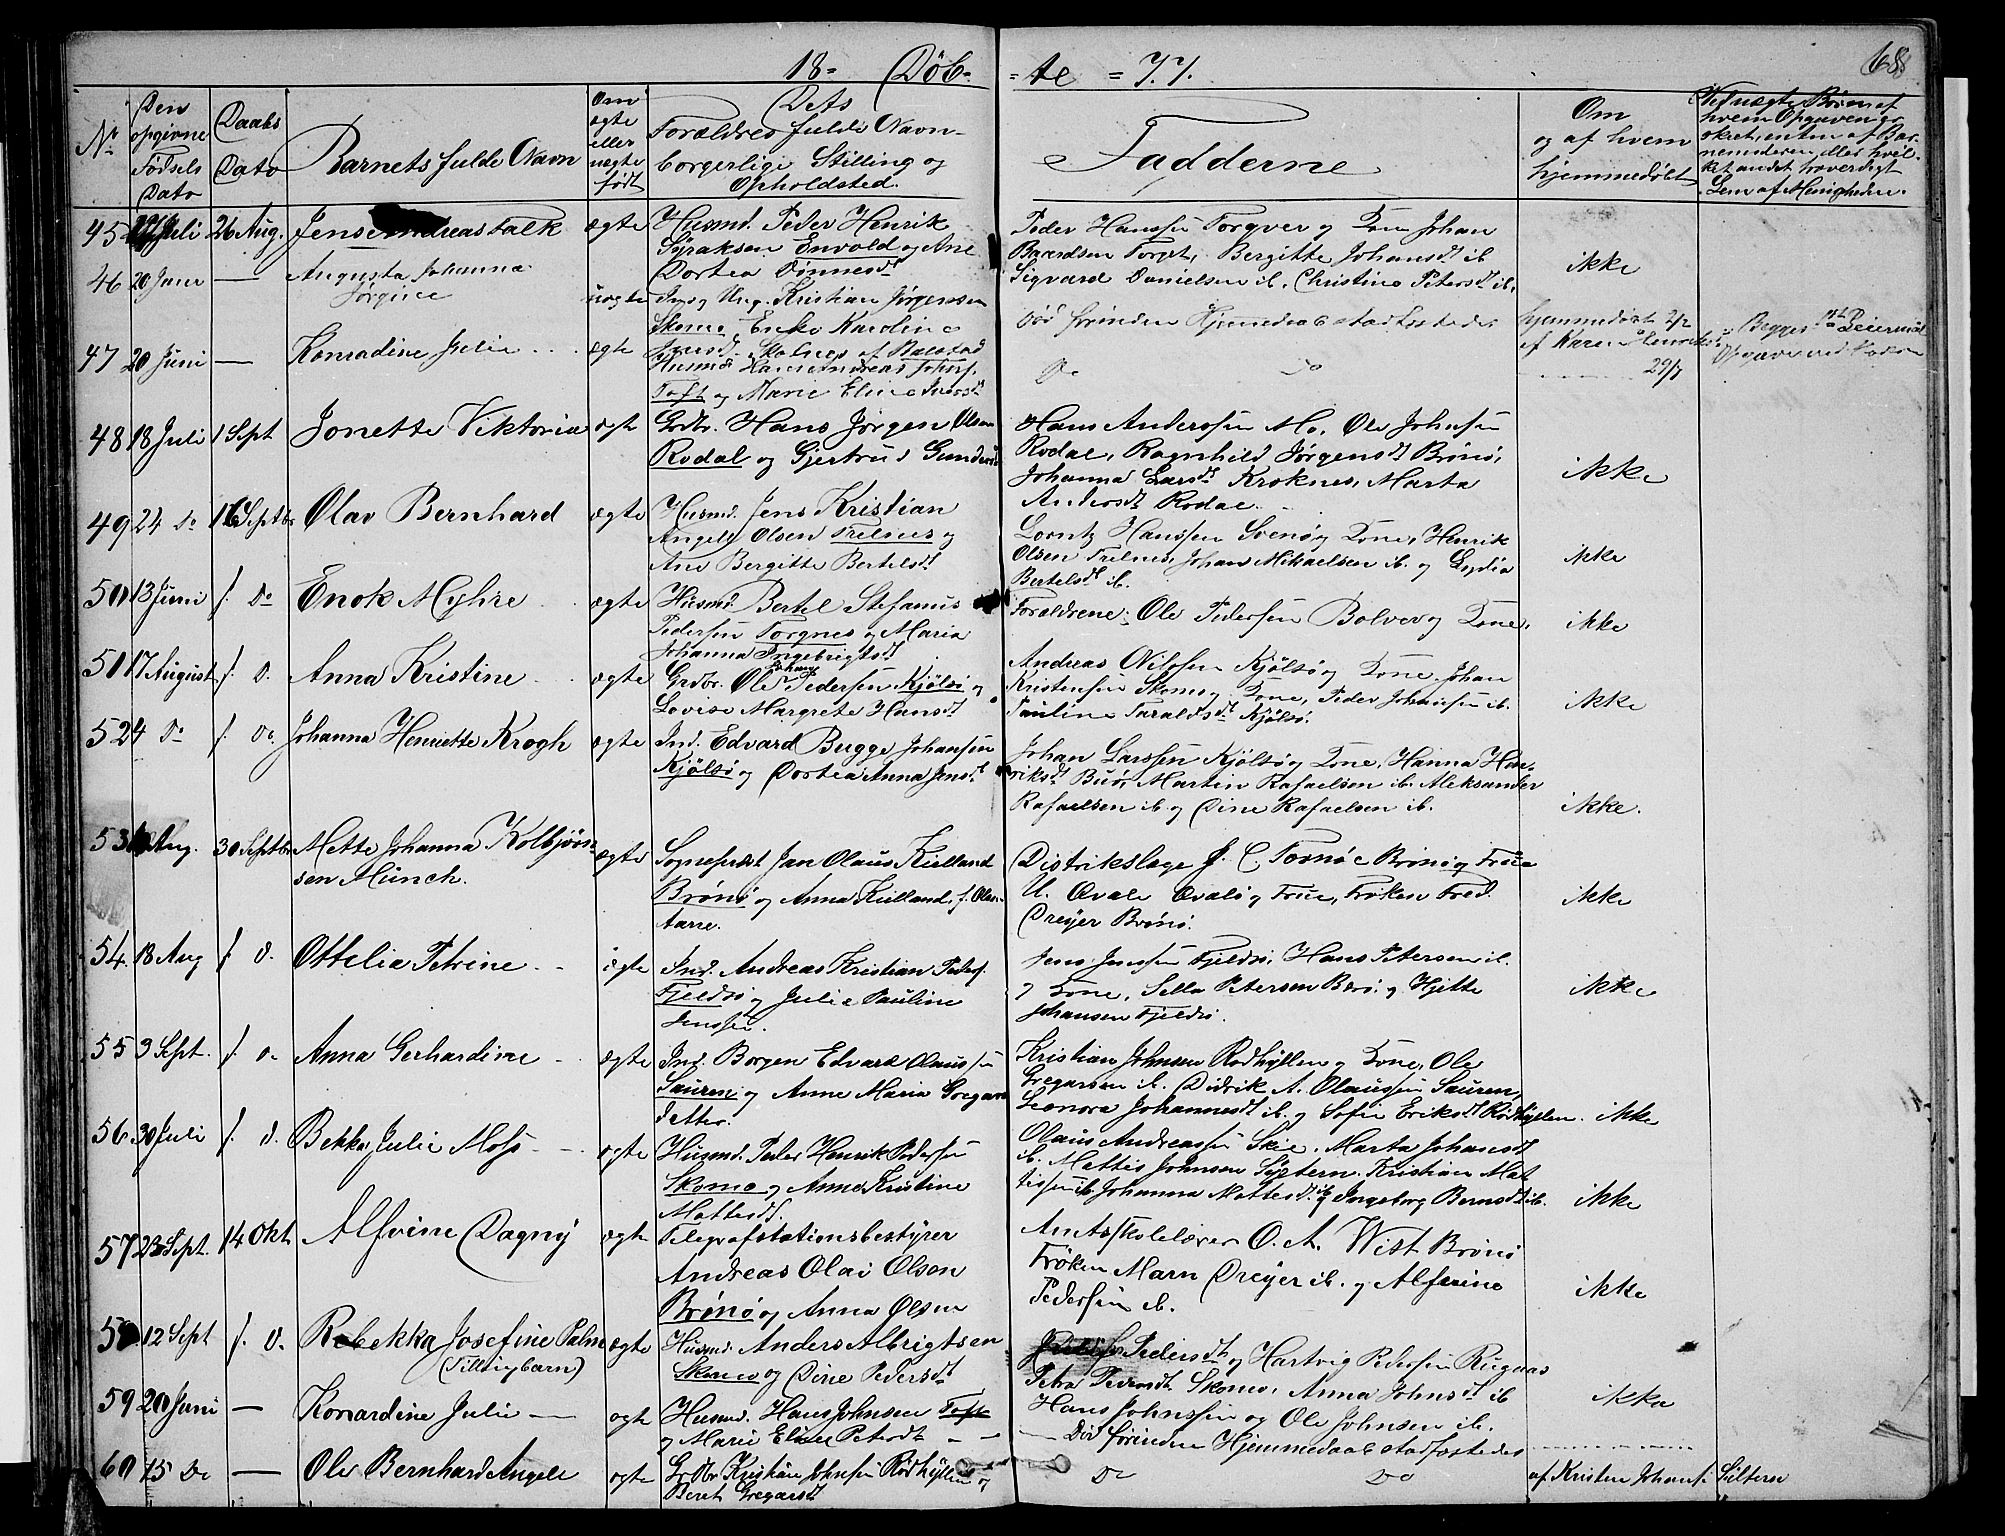 18= Døb= =te =77. 68.
No
Den opgivne Fødsels Dato
Daabs Dato
Barnets fulde Navn
Om ægte eller uægte født
Dets Forældres fulde Navn borgerlige Stilling og Opholdsted.
Fadderne
Om og af hvem hjemmedøbt
Ved uægte Børn af hvem Opgaven er skeet, enten af Barnemoderen eller hvilket andet troværdigt Lem af Menigheden.
45 Juli 26 Aug. Jens Andreas Falk ægte Husmd. Peder Henrik
Syraksen Envold og Ane
Dortea Tønnesdt
Peder Hanssen Torgver og Kone Johan
Barendsen Torgst, Bergitte Johansdt ib
Sigvard Danielsen ib. Christine Petersdt ib.
ikke
46 20 Juni — Augusta Johanna
Jørgine
uægte Ind og Ung. Kristian Jørgenssen
Skomo, Enke Karoline
Jensdt. Skolnes af Balstad
Død forinden Hjemmedaab stadfestedes
hjemmedøbt 2/7
af Karen Henriks
Begges
Opgave ved Faderen
47 20 Juni — Konradine Julie ægte Husmd Hans Andreas Johnss.
Toft og Marie Eline
Do Do
29/7
48 18 Juli 1 Sept Jonette Viktoria ægte Grdbr. Hans Jørgen Olsen
Rodal og Gjertrud Gundersd
Hans Anderssen Mo, Ole Johnsen
Rodal, Ragnhild Jørgensdt Brønø,
Johanna Larsdt Kroknes, Marta
Andersdt Rodal.
ikke
49 24 Do 16 Septbr Olav Bernhard ægte Husmd. Jens Kristian
Angell Olsen Trelnes og
Ane Bergitte Bertelsdt
Lorntz Hanssen Svenø og Kone, Henrik
Olsen Trelnes, Johan Mikaelsen ib. og Lydia
Bertelsdt ib.
ikke
50 13 Juni f. Do Enok Myhre ægte Husmd. Bertel Stefanus
Pedersen Torgnes og Maria
Johanna Ingebrigtsdt
Forældrene, Ole Pedersen Bolver og Kone,
ikke
51 17 August f. D. Anna Kristine ægte Grdbr. Ole Johan Pedersen Kjølsø og
Lovise Margrete Hansdt
Andreas Nilssen Kjølsø og Kone, Johan
Kristensen Skomo og Kone, Peder Johansen ib.
Pauline Taraldsdt Kjølsø.
ikke
52 4 Do f. Do. Johanna Henriette Krogh ægte Ind. Edvard Bugge Johansen
Kjølsø og Dortea Anna Jensdt
Johan Larssen Kjølsø og Kone, Hanna Hen-
riksdt Buø, Martin Rafaelsen ib. Aleksander
Rafaelsen ib og Dine Rafaelsen ib.
ikke.
53 Aug. 30 Septbr Mette Johanna Kolbjørn-
sen Münch.
ægte Sognepræst Jan Olaus Kielland
Brønø og Anna Kielland, f. Olau-
Distriktslæge J. C. Tornøe Brønø og Frue
U. Qvale Qvalø og Frue, Frøken Fred.
Dreyer Brønø.
ikke
54. 18 Aug f. D. Ottelia Petrine ægte Ind. Andreas Kristian Peders.
Fjeldsø og Julie Pauline
Jenssen.
Jens Jenssen Fjeldsø, Hans Petersen ib.
og Kone, Sella Petersen Bærø og Hjette
Johansen Fjeldsø.
ikke
55 3 Sept. f. D. Anna Gerhardine ægte Ind. Borgen Edvard Olaussen
Sauren og Anne Maria Gregars
datter.
Kristian Johnsen Rødhyllen og Kone, Ole
Gregarsen ib. Didrik A. Olaussen Sauren,
Leonora Johannesdt ib. og Sofie Eriksdt Rødhyllen.
ikke
56 30 Juli f. D. Bekka Julie Moss ægte Husmd. Peder Henrik Pedersen
Skomo og Anne Kristine
Mattesdt.
Olaus Andreassen Skie, Marta Johansdt
ib. Mattis Johnsen Syltern, Kristian Mat
tissen ib. Johanna Mattesdt ib og Ingeborg Berntsdt ib.
ikke
57 23 Sept. 14 Okt Alfvine Dagny ægte Telegrafstationsbestyrer
Andreas Olai Olsen
Brønø og Anna Olsen
Amtsskolelærer O. A. Wist Brønø
Frøken Marn Dreyer ib. og Alfvine
Pedersen ib.
ikke
58 12 Sept f. D. Rebekka Josefine Palm
(Tvillingbarn)
ægte Husmd. Anders Albrigtsen
Skomo og Dine Pedersdt
Pedersdt og Hartvig Pedersen
Petra Pedersdt Skomo, Anna Johnsdt ib
Hans Johnssen og Ole Johnsen ib.
ikke
59 20 Juni — Konardine Julie — ægte Husmd. Hans Johnsen Toft
og Marie Eline Petersdt
Død forinden Hjemmedaab stadfæstedes
60 15 Do — Ole Bernhard Angell ægte Grdbr Kristian Johnsen Rødhyllen og
Beret Gregarsdt
Do Do
af Kristen Johans. Sültern